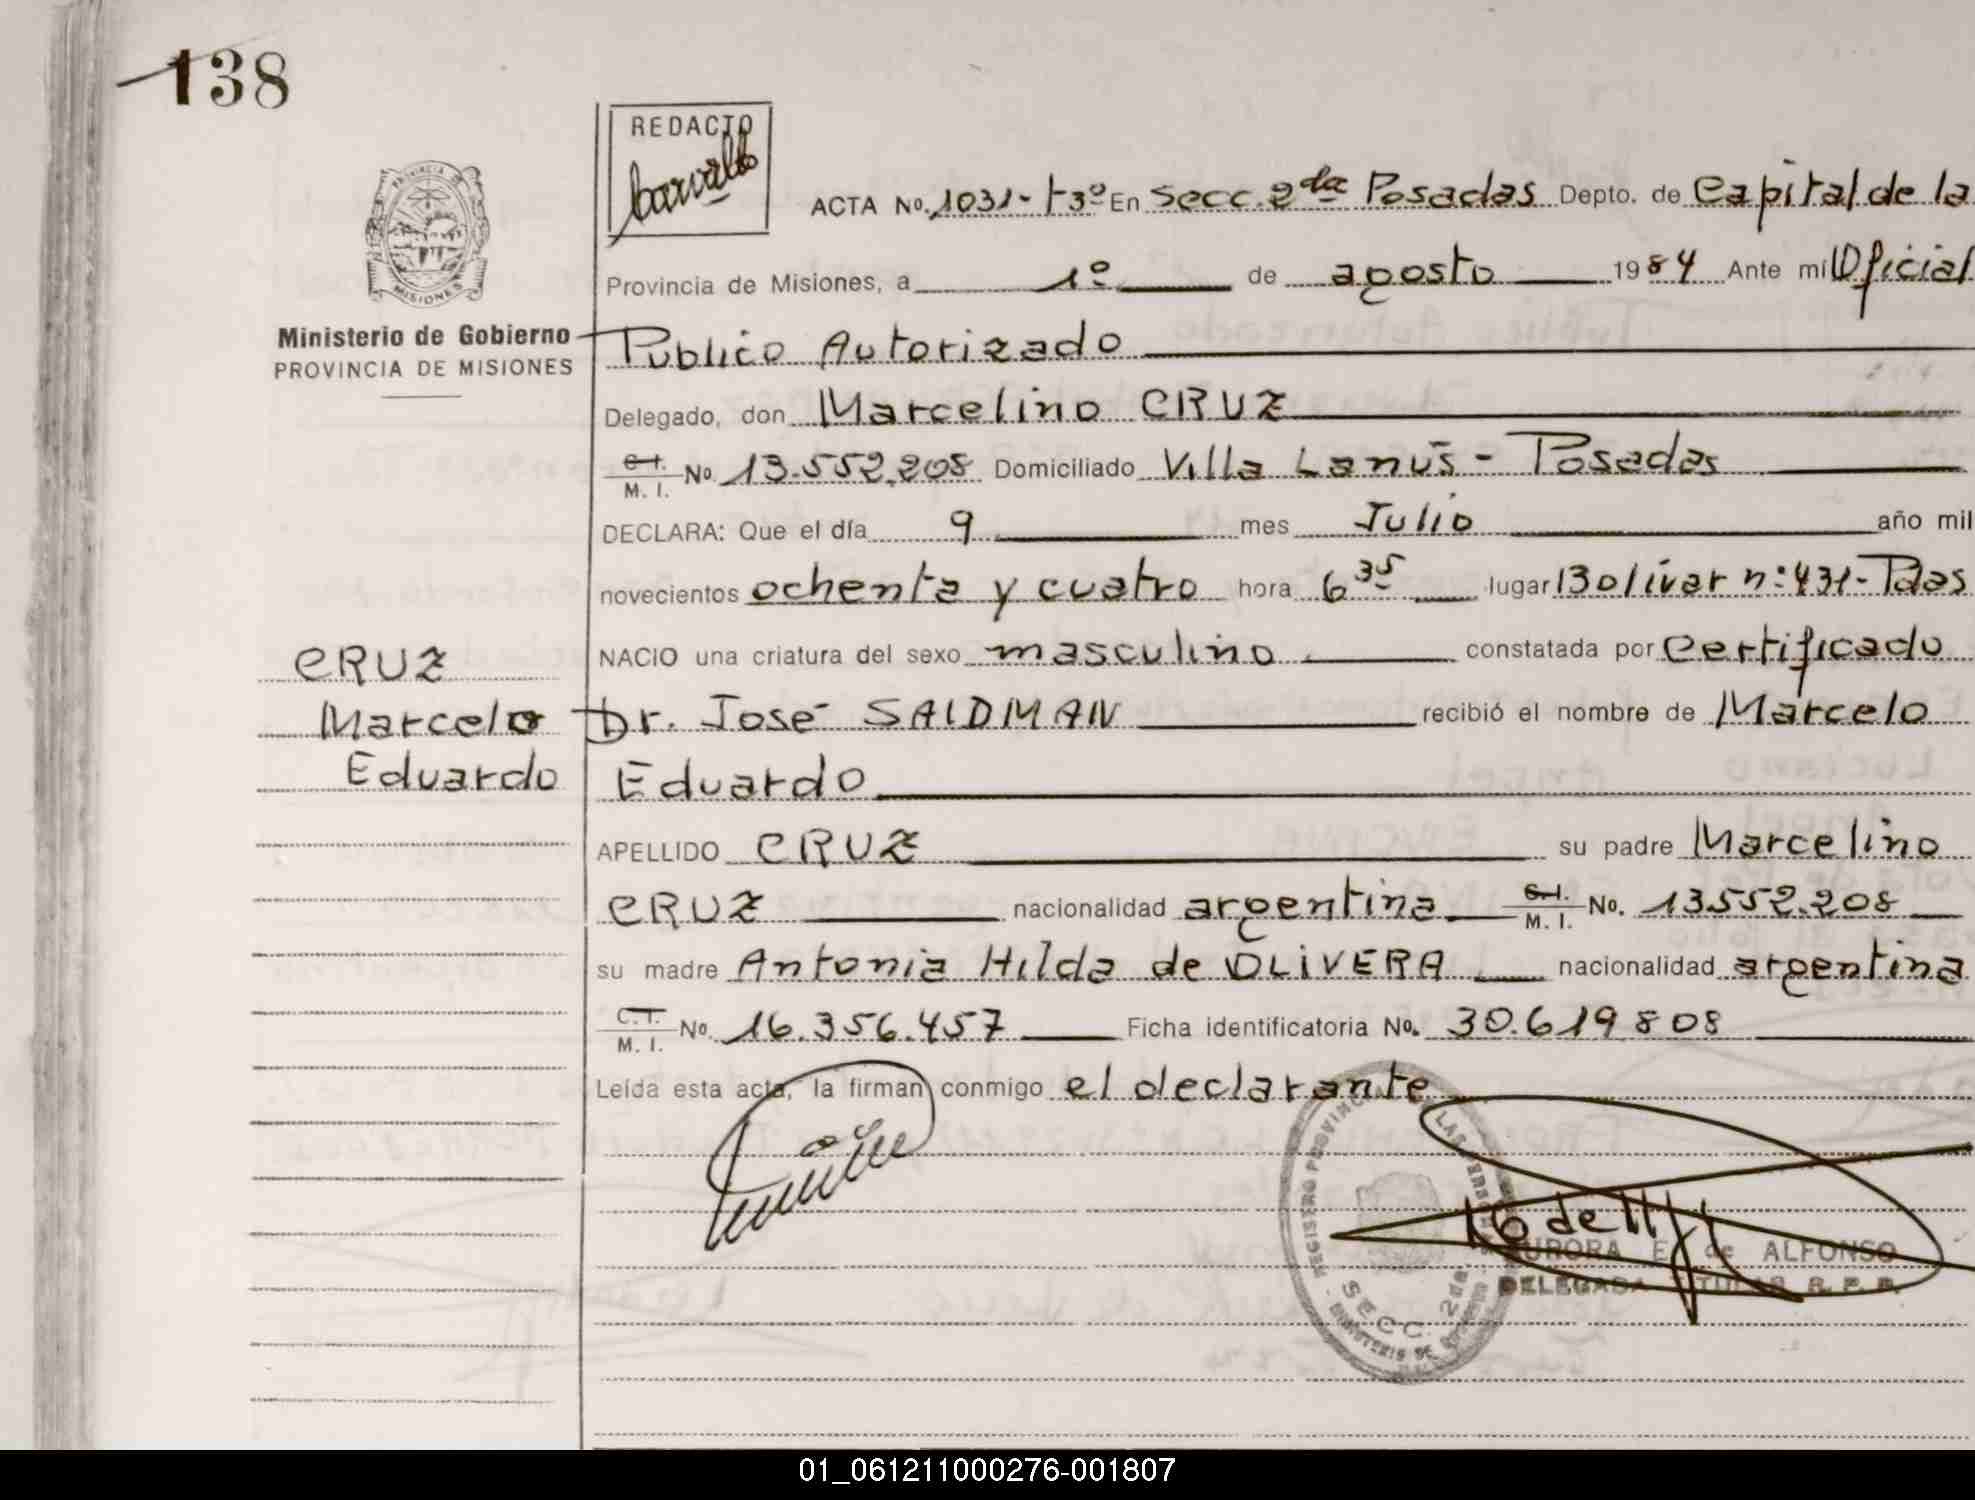 138
REDACTO
PROVINCIA DE
MISIONES
Ministerio de Gobierno
PROVINCIA DE MISIONES
ACTA No. 1031- t3º En Secc. 2da Posadas Depto. de Capital de la
Provincia de Misiones, a 1º de agosto 1984 Ante mi Oficial
Publico Autorizado
Delegado, don Marcelino CRUZ
C.I. M. I. No. 13.552.208 Domiciliado Villa Lanús - Posadas
DECLARA: Que el día 9 mes Julio año mil
novecientos ochenta y cuatro hora 6 35 lugar Bolívar nº 431- Pdas
NACIO una criatura del sexo masculino constatada por Certificado
Dr. José SAIDMAN recibió el nombre de Marcelo
Eduardo
APELLIDO CRUZ su padre Marcelino
CRUZ nacionalidad argentina C.I. M. I. No. 13.552.208
su madre Antonia Hilda de OLIVERA nacionalidad argentina
C.I. M. I. No. 16.356.457 Ficha identificatoria No. 30.619808
Leída esta acta, la firman conmigo el declarante
CRUZ
Marcelo
Eduardo
REGISTRO PROVINCIAL DE LAS PERSONAS
SECC. 2da.
MINISTERIO DE GOBIERNO
AURORA E. de ALFONSO
DELEGADA TITULAR R. P. P.
01_061211000276-001807